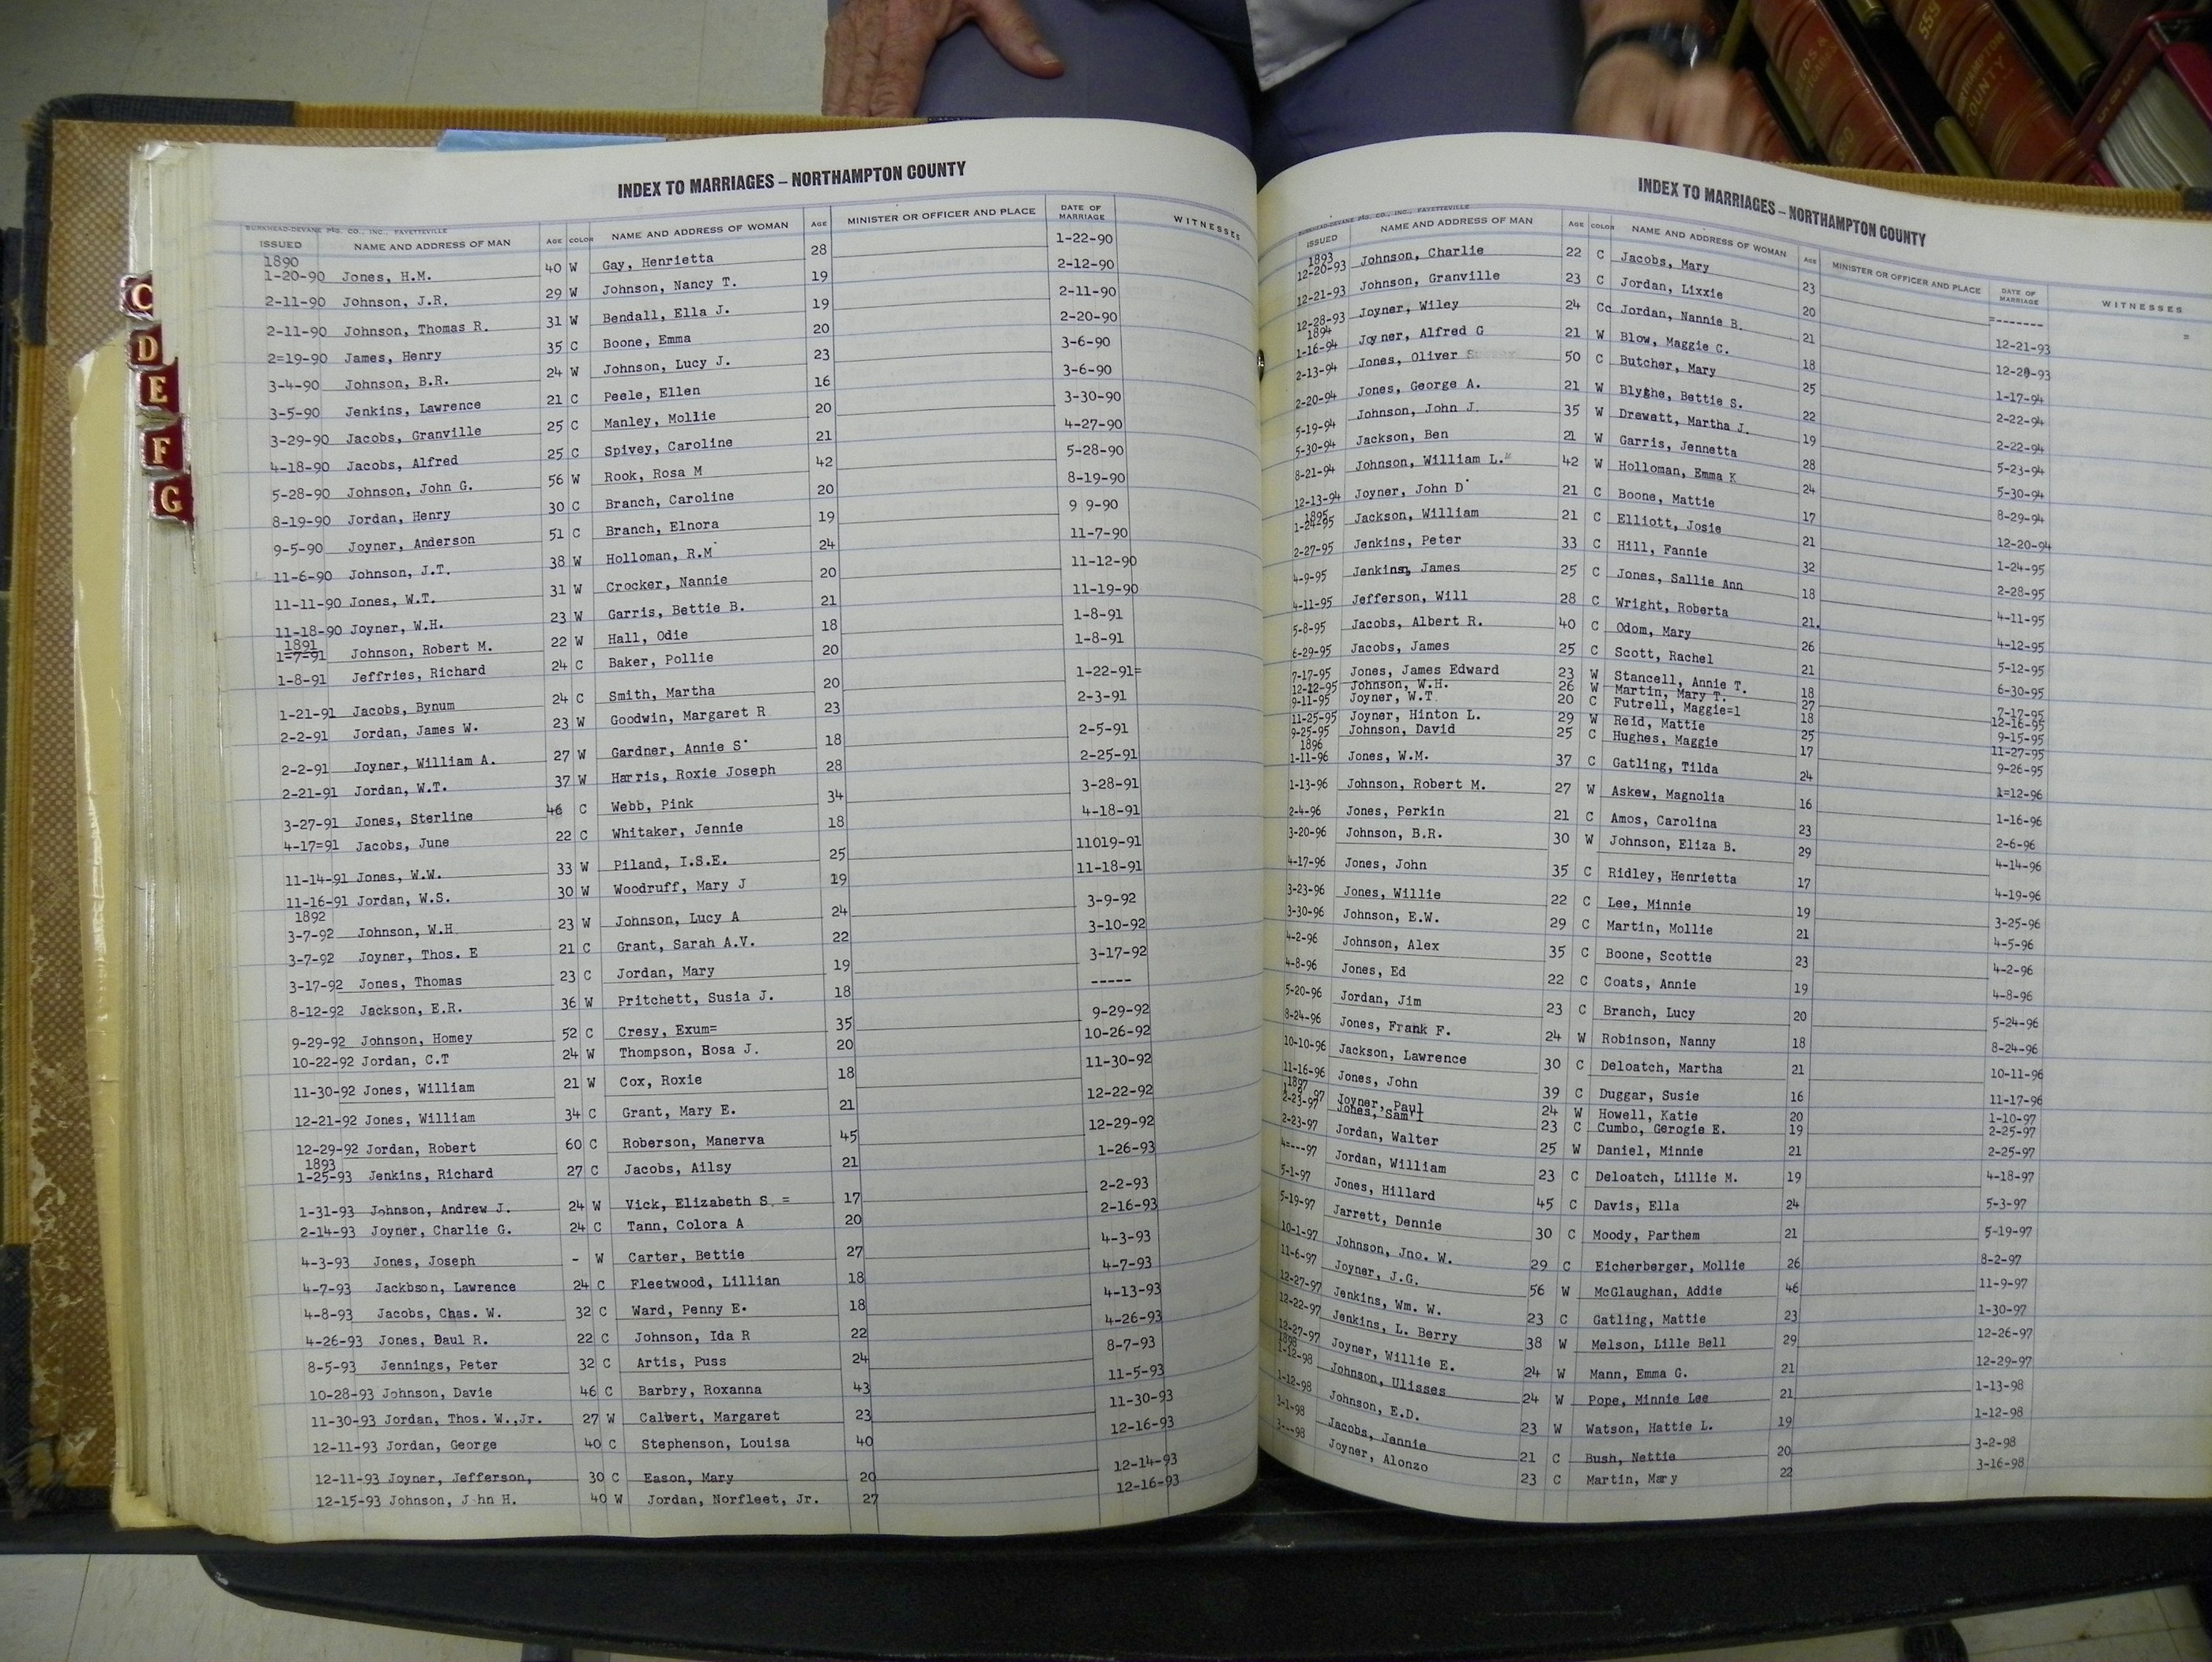 INDEX TO MARRIAGES – NORTHAMPTON COUNTY
BURKHEAD-DEVANE PTG. CO., INC., FAYETTEVILLE
ISSUED NAME AND ADDRESS OF MAN AGE COLOR NAME AND ADDRESS OF WOMAN AGE MINISTER OR OFFICER AND PLACE DATE OF MARRIAGE WITNESSES
1890
1-20-90 Jones, H.M. 40 W Gay, Henrietta 28 1-22-90
2-11-90 Johnson, J.R. 29 W Johnson, Nancy T. 19 2-12-90
2-11-90 Johnson, Thomas R. 31 W Bendall, Ella J. 19 2-11-90
2=19-90 James, Henry 35 C Boone, Emma 20 2-20-90
3-4-90 Johnson, B.R. 24 W Johnson, Lucy J. 23 3-6-90
3-5-90 Jenkins, Lawrence 21 C Peele, Ellen 16 3-6-90
3-29-90 Jacobs, Granville 25 C Manley, Mollie 20 3-30-90
4-18-90 Jacobs, Alfred 25 C Spivey, Caroline 21 4-27-90
5-28-90 Johnson, John G. 56 W Rook, Rosa M 42 5-28-90
8-19-90 Jordan, Henry 30 C Branch, Caroline 20 8-19-90
9-5-90 Joyner, Anderson 51 C Branch, Elnora 19 9 9-90
11-6-90 Johnson, J.T. 38 W Holloman, R.M 24 11-7-90
11-11-90 Jones, W.T. 31 W Crocker, Nannie 20 11-12-90
11-18-90 Joyner, W.H. 23 W Garris, Bettie B. 21 11-19-90
1891
1-7-91 Johnson, Robert M. 22 W Hall, Odie 18 1-8-91
1-8-91 Jeffries, Richard 24 C Baker, Pollie 20 1-8-91
1-21-91 Jacobs, Bynum 24 C Smith, Martha 20 1-22-91=
2-2-91 Jordan, James W. 23 W Goodwin, Margaret R 23 2-3-91
2-2-91 Joyner, William A. 27 W Gardner, Annie S 18 2-5-91
2-21-91 Jordan, W.T. 37 W Harris, Roxie Joseph 28 2-25-91
3-27-91 Jones, Sterline 46 C Webb, Pink 34 3-28-91
4-17=91 Jacobs, June 22 C Whitaker, Jennie 18 4-18-91
11-14-91 Jones, W.W. 33 W Piland, I.S.E. 25 11019-91
11-16-91 Jordan, W.S. 30 W Woodruff, Mary J 19 11-18-91
1892
3-7-92 Johnson, W.H 23 W Johnson, Lucy A 24 3-9-92
3-7-92 Joyner, Thos. E 21 C Grant, Sarah A.V. 22 3-10-92
3-17-92 Jones, Thomas 23 C Jordan, Mary 19 3-17-92
8-12-92 Jackson, E.R. 36 W Pritchett, Susia J. 18 -----
9-29-92 Johnson, Homey 52 C Cresy, Exum= 35 9-29-92
10-22-92 Jordan, C.T 24 W Thompson, Rosa J. 20 10-26-92
11-30-92 Jones, William 21 W Cox, Roxie 18 11-30-92
12-21-92 Jones, William 34 C Grant, Mary E. 21 12-22-92
12-29-92 Jordan, Robert 60 C Roberson, Manerva 45 12-29-92
1893
1-25-93 Jenkins, Richard 27 C Jacobs, Ailsy 21 1-26-93
1-31-93 Johnson, Andrew J. 24 W Vick, Elizabeth S. = 17 2-2-93
2-14-93 Joyner, Charlie G. 24 C Tann, Colora A 20 2-16-93
4-3-93 Jones, Joseph - W Carter, Bettie 27 4-3-93
4-7-93 Jackbson, Lawrence 24 C Fleetwood, Lillian 18 4-7-93
4-8-93 Jacobs, Chas. W. 32 C Ward, Penny E. 18 4-13-93
4-26-93 Jones, Daul R. 22 C Johnson, Ida R 22 4-26-93
8-5-93 Jennings, Peter 32 C Artis, Puss 24 8-7-93
10-28-93 Johnson, Davie 46 C Barbry, Roxanna 43 11-5-93
11-30-93 Jordan, Thos. W.,Jr. 27 W Calvert, Margaret 23 11-30-93
12-11-93 Jordan, George 40 C Stephenson, Louisa 40 12-16-93
12-11-93 Joyner, Jefferson, 30 C Eason, Mary 20 12-14-93
12-15-93 Johnson, J hn H. 40 W Jordan, Norfleet, Jr. 27 12-16-93
INDEX TO MARRIAGES – NORTHAMPTON COUNTY
BURKHEAD-DEVANE PTG. CO., INC., FAYETTEVILLE
ISSUED NAME AND ADDRESS OF MAN AGE COLOR NAME AND ADDRESS OF WOMAN AGE MINISTER OR OFFICER AND PLACE DATE OF MARRIAGE WITNESSES
1893
12-20-93 Johnson, Charlie 22 C Jacobs, Mary 23 =-------
12-21-93 Johnson, Granville 23 C Jordan, Lixxie 20 12-21-93
12-28-93 Joyner, Wiley 24 Cc Jordan, Nannie B. 21 12-20-93
1894
1-16-94 Joyner, Alfred G 21 W Blow, Maggie C. 18 1-17-94
2-13-94 Jones, Oliver 50 C Butcher, Mary 25 2-22-94
2-20-94 Jones, George A. 21 W Blyghe, Bettie S. 22 2-22-94
5-19-94 Johnson, John J. 35 W Drewett, Martha J. 19 5-23-94
5-30-94 Jackson, Ben 21 W Garris, Jennetta 28 5-30-94
8-21-94 Johnson, William L." 42 W Holloman, Emma K 24 8-29-94
12-13-94 Joyner, John D 21 C Boone, Mattie 17 12-20-94
1895
1-24-95 Jackson, William 21 C Elliott, Josie 21 1-24-95
2-27-95 Jenkins, Peter 33 C Hill, Fannie 32 2-28-95
4-9-95 Jenkins, James 25 C Jones, Sallie Ann 18 4-11-95
4-11-95 Jefferson, Will 28 C Wright, Roberta 21. 4-12-95
5-8-95 Jacobs, Albert R. 40 C Odom, Mary 26 5-12-95
6-29-95 Jacobs, James 25 C Scott, Rachel 21 6-30-95
7-17-95 Jones, James Edward 23 W Stancell, Annie T. 18 7-17-95
12-12-95 Johnson, W.H. 26 W Martin, Mary T. 27 12-16-95
9-11-95 Joyner, W.T. 20 C Futrell, Maggie=l 18 9-15-95
11-25-95 Joyner, Hinton L. 29 W Reid, Mattie 25 11-27-95
9-25-95 Johnson, David 25 C Hughes, Maggie 17 9-26-95
1896
1-11-96 Jones, W.M. 37 C Gatling, Tilda 24 1=12-96
1-13-96 Johnson, Robert M. 27 W Askew, Magnolia 16 1-16-96
2-4-96 Jones, Perkin 21 C Amos, Carolina 23 2-6-96
3-20-96 Johnson, B.R. 30 W Johnson, Eliza B. 29 4-14-96
4-17-96 Jones, John 35 C Ridley, Henrietta 17 4-19-96
3-23-96 Jones, Willie 22 C Lee, Minnie 19 3-25-96
3-30-96 Johnson, E.W. 29 C Martin, Mollie 21 4-5-96
4-2-96 Johnson, Alex 35 C Boone, Scottie 23 4-2-96
4-8-96 Jones, Ed 22 C Coats, Annie 19 4-8-96
5-20-96 Jordan, Jim 23 C Branch, Lucy 20 5-24-96
8-24-96 Jones, Frank F. 24 W Robinson, Nanny 18 8-24-96
10-10-96 Jackson, Lawrence 30 C Deloatch, Martha 21 10-11-96
11-16-96 Jones, John 39 C Duggar, Susie 16 11-17-96
1897
97 Joyner, Paul 24 W Howell, Katie 20 1-10-97
2-23-97 Jones, Sam'l 23 C Cumbo, Gerogie E. 19 2-25-97
2-23-97 Jordan, Walter 25 W Daniel, Minnie 21 2-25-97
4----97 Jordan, William 23 C Deloatch, Lillie M. 19 4-18-97
5-1-97 Jones, Hillard 45 C Davis, Ella 24 5-3-97
5-19-97 Jarrett, Dennie 30 C Moody, Parthem 21 5-19-97
10-1-97 Johnson, Jno. W. 29 C Eicherberger, Mollie 26 8-2-97
11-6-97 Joyner, J.G. 56 W McGlaughan, Addie 46 11-9-97
12-27-97 Jenkins, Wm. W. 23 C Gatling, Mattie 23 1-30-97
12-22-97 Jenkins, L. Berry 38 W Melson, Lille Bell 29 12-26-97
12-27-97 Joyner, Willie E. 24 W Mann, Emma G. 21 12-29-97
1898
1-12-98 Johnson, Ulisses 24 W Pope, Minnie Lee 21 1-13-98
1-12-98 Johnson, E.D. 23 W Watson, Hattie L. 19 1-12-98
3-1-98 Jacobs, Jennie 21 C Bush, Nettie 20 3-2-98
3---98 Joyner, Alonzo 23 C Martin, Mary 22 3-16-98
C
D
E
F
G
559
NORTHAMPTON
COUNTY